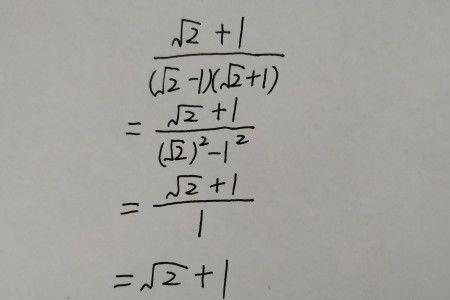 √2 + 1
(√2 - 1)(√2 + 1)
= √2 + 1
(√2)² - 1²
= √2 + 1
1
= √2 + 1